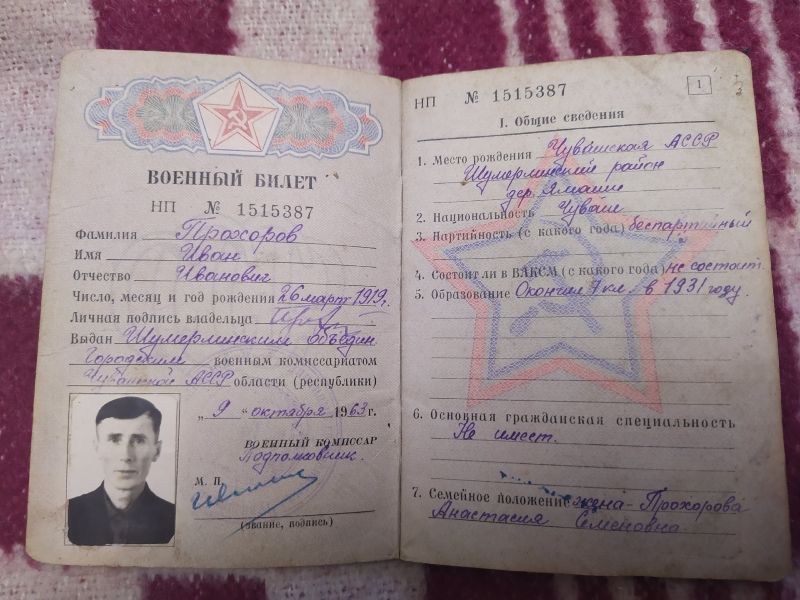 ВОЕННЫЙ БИЛЕТ
НП № 1515387
Фамилия Прохоров
Имя Иван
Отчество Иванович
Число, месяц и год рождения 26 март 1919г.
Личная подпись владельца
Выдан Шумерлинским Объедин.
Городским военным комиссариатом
Чувашской АССР области (республики)
„ 9 “ октября 1963 г.
ВОЕННЫЙ КОМИССАР
Подполковник.
М. П.
(звание, подпись)
НП № 1515387
1
I. Общие сведения
1. Место рождения Чувашская АССР
Шумерлинский район
дер. Ямаши
2. Национальность Чуваш
3. Партийность (с какого года) беспартийный
4. Состоит ли в ВЛКСМ (с какого года) не состоит.
5. Образование Окончил 7 кл. в 1931 году.
6. Основная гражданская специальность
Не имеет.
7. Семейное положение жена - Прохорова
Анастасия Семеновна.